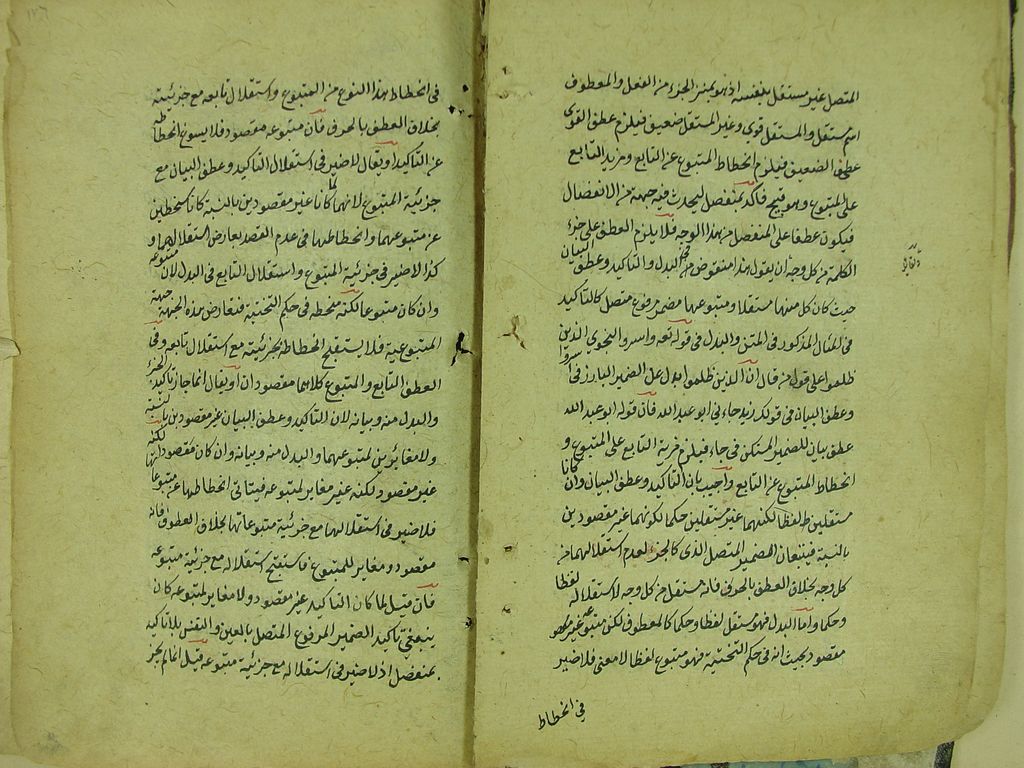 المتصل غير مستقل بنفسه اذ هو بمنزلة الجزء من الفعل والمعطوف
اسم مستقل والمستقل قوي وغير المستقل ضعيف فيلزم عطف القوي
على الضعيف فيلزم انحطاط المتبوع عن التابع ومزيد التابع
على المتبوع وهو قبيح فاكد بمنفصل ليحدث فيه جهة من الانفصال
فيكون عطفا على المنفصل من هذا الوجه فلا يلزم العطف على جزء
الكلمة من كل وجه ان يقول هذا منقوض بالبدل والتاكيد وعطف البيان
حيث كان كل منها مستقلا ومتبوعها مضمر مرفوع متصل كالتاكيد
في المثال المذكور في المتن والبدل في قوله تعالى واسروا النجوى الذين
ظلموا على قول من قال ان الذين ظلموا بدل عن الضمير البارز في اسروا
وعطف البيان في قولك زيد جاءني ابو عبد الله فان قوله ابو عبد الله
عطف بيان للضمير المستكن في جاء فيلزم مزية التابع على المتبوع و
انحطاط المتبوع عن التابع واجيب بان التاكيد وعطف البيان وان كانا
مستقلين لفظا لكنهما غير مستقلين حكما لكونهما غير مقصودين
بالنسبة فيتبعان الضمير المتصل الذي كالجزء لعدم استقلالهما من
كل وجه بخلاف العطف بالحروف فانه مستقل من كل وجه لاستقلاله لفظا
وحكما واما البدل فهو مستقل لفظا وحكما كالمعطوف لكن متبوعه غير
مقصود بحيث انه في حكم التنحية فهو متبوع لفظا لا معنى فلا ضير
في انحطاط
في انحطاط هذا النوع من المتبوع واستقلال تابعه مع جزئيته
بخلاف العطف بالحروف فان متبوعه مقصود فلا يسوغ انحطاطه
عن التاكيد او يقال لا ضير في استقلال التاكيد وعطف البيان مع
جزئية المتبوع لانهما لما كانا غير مقصودين بالنسبة كانا منحطين
عن متبوعهما وانحطاطهما في عدم القصد يعارض استقلالهما و
كذا لا ضير في جزئية المتبوع واستقلال التابع في البدل لان متبوعه
وان كان متبوعا لكنه منحطه في حكم التنحية فتعارض هذه الجهة جهة
المتبوعية فلا يستقبح انحطاطه بجزئيته مع استقلال تابعه وفي
العطف التابع والمتبوع كلاهما مقصودان او يقال انما جاز تاكيد الجزء
والبدل منه وبيانه لان التاكيد وعطف البيان غير مقصودين بالنسبة
ولا مغايرين لمتبوعهما والبدل منه وبيانه وان كان مقصودا لكنه
غير مقصود لكنه غير مغاير لمتبوعه فيتاتى انحطاطها عن متبوعاتها
فلا ضير في استقلالها مع جزئية متبوعاتها بخلاف العطف فانه
مقصود ومغاير للمتبوع فاستقبح استقلاله مع جزئية متبوعه
فان قيل لما كان التاكيد غير مقصود ولا مغاير لمتبوعه كان
ينبغي تاكيد الضمير المرفوع المتصل بالعين والنفس بلا تاكيد
بمنفصل اذ لا ضير في استقلاله مع جزئية متبوعه قيل انما لم يجز